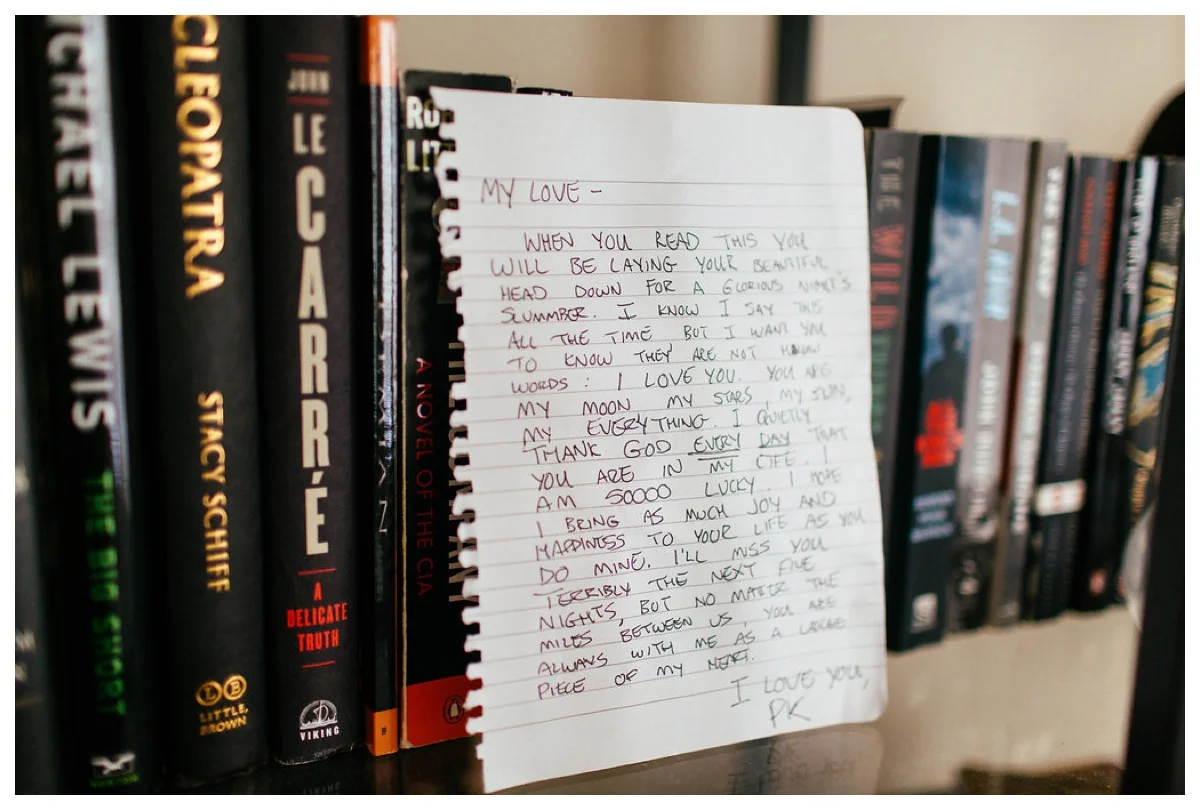 MICHAEL LEWIS
THE BIG SHORT
CLEOPATRA
STACY SCHIFF
LITTLE, BROWN
JOHN
LE CARRÉ
A
DELICATE
TRUTH
VIKING
RO
LIT
A NOVEL OF THE CIA
MY LOVE -
WHEN YOU READ THIS YOU
WILL BE LAYING YOUR BEAUTIFUL
HEAD DOWN FOR A GLORIOUS NIGHT'S
SLUMMBER. I KNOW I SAY THIS
ALL THE TIME BUT I WANT YOU
TO KNOW THEY ARE NOT HOLLOW
WORDS: I LOVE YOU. YOU ARE
MY MOON MY STARS, MY SUN,
MY EVERYTHING. I QUIETLY
THANK GOD EVERY DAY THAT
YOU ARE IN MY LIFE. I
AM SOOOO LUCKY. I HOPE
I BRING AS MUCH JOY AND
HAPPINESS TO YOUR LIFE AS YOU
DO MINE. I'LL MISS YOU
TERRIBLY THE NEXT FIVE
NIGHTS, BUT NO MATTER THE
MILES BETWEEN US, YOU ARE
ALWAYS WITH ME AS A LARGE
PIECE OF MY HEART.
I LOVE YOU,
PK
THE WILD